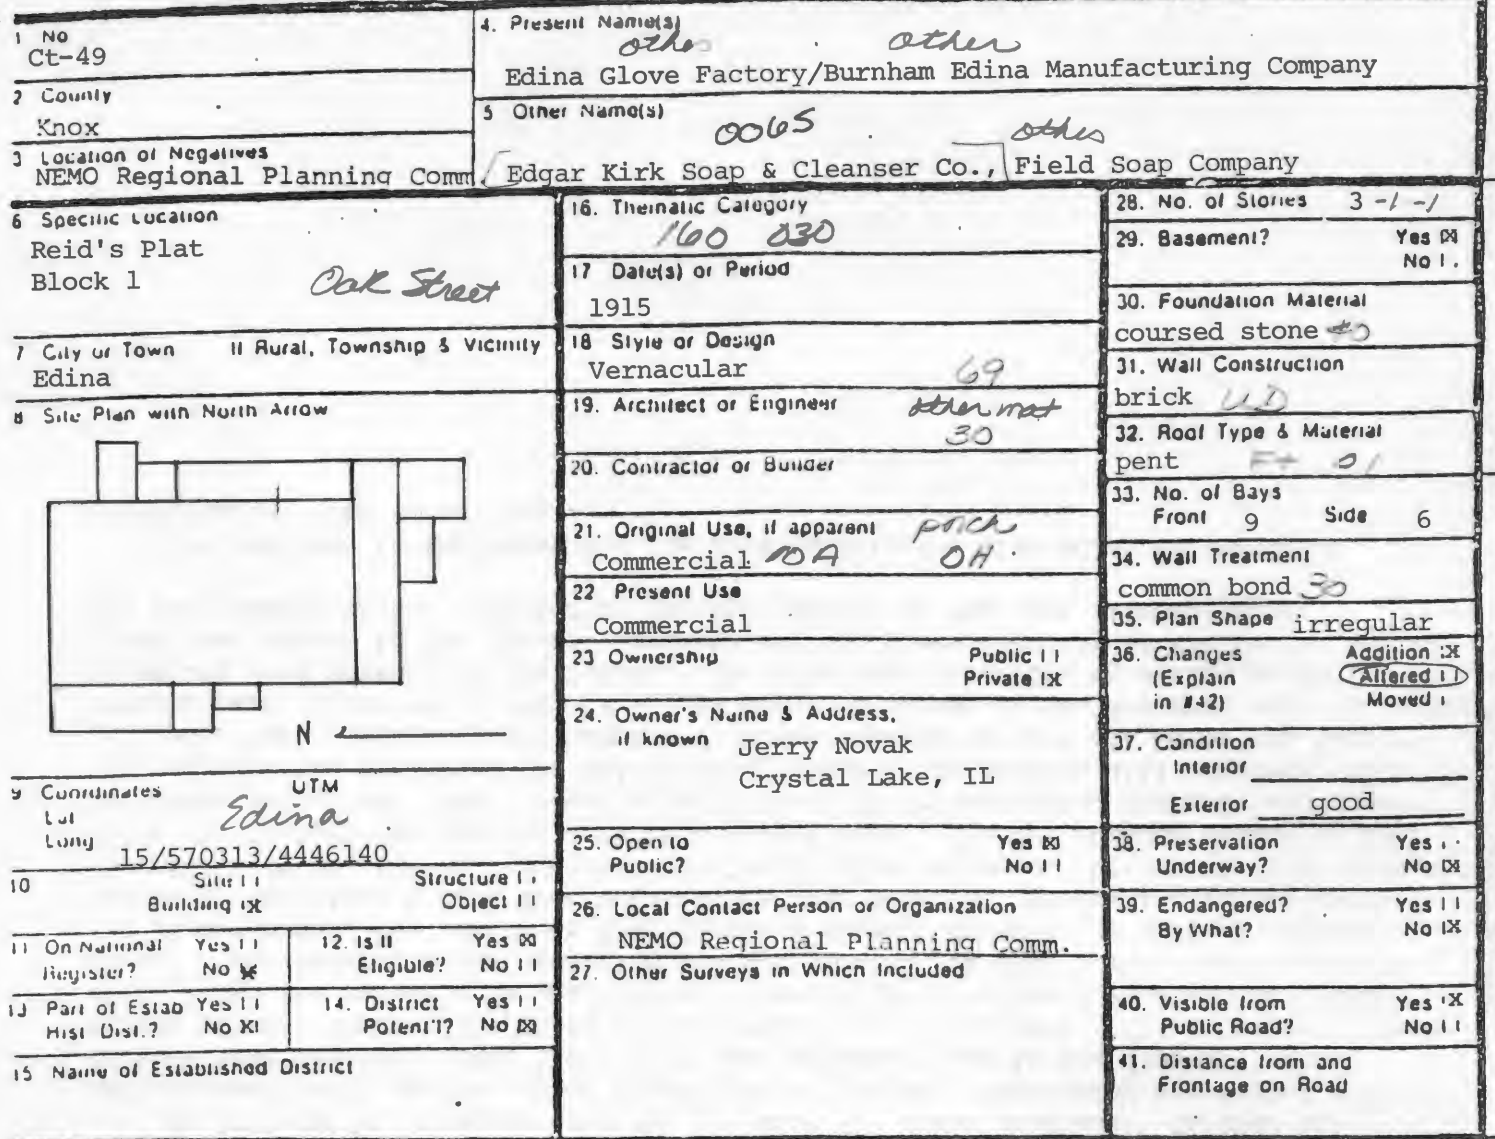 1 No
Ct-49
2 County
Knox
3 Location of Negatives
NEMO Regional Planning Comm.
4. Present Name(s)
other other
Edina Glove Factory/Burnham Edina Manufacturing Company
5 Other Name(s)
0065 other
Edgar Kirk Soap & Cleanser Co., Field Soap Company
6 Specific Location
Reid's Plat
Block 1
Oak Street
7 City or Town If Rural, Township & Vicinity
Edina
8 Site Plan with North Arrow
N
9 Coordinates UTM
Lat
Long
Edina
15/570313/4446140
10 Site Structure
Building X Object
11 On National Register? Yes No X
12. Is It Eligible? Yes X No
13 Part of Estab Hist Dist.? Yes No X
14. District Potent'l? Yes No X
15 Name of Established District
16. Thematic Category
160 030
17 Date(s) or Period
1915
18 Style or Design
Vernacular 69
19. Architect or Engineer
other mat
30
20. Contractor or Builder
21. Original Use, if apparent
porch
Commercial 10A OH
22 Present Use
Commercial
23 Ownership Public
Private X
24. Owner's Name & Address,
if known
Jerry Novak
Crystal Lake, IL
25. Open to Yes X
Public? No
26. Local Contact Person or Organization
NEMO Regional Planning Comm.
27. Other Surveys in Which Included
28. No. of Stories 3 -1 -1
29. Basement? Yes X
No
30. Foundation Material
coursed stone
31. Wall Construction
brick
32. Roof Type & Material
pent 01
33. No. of Bays
Front 9 Side 6
34. Wall Treatment
common bond 30
35. Plan Shape irregular
36. Changes Addition X
(Explain Altered
in #42) Moved
37. Condition
Interior
Exterior good
38. Preservation Yes
Underway? No X
39. Endangered? Yes
By What? No X
40. Visible from Yes X
Public Road? No
41. Distance from and
Frontage on Road